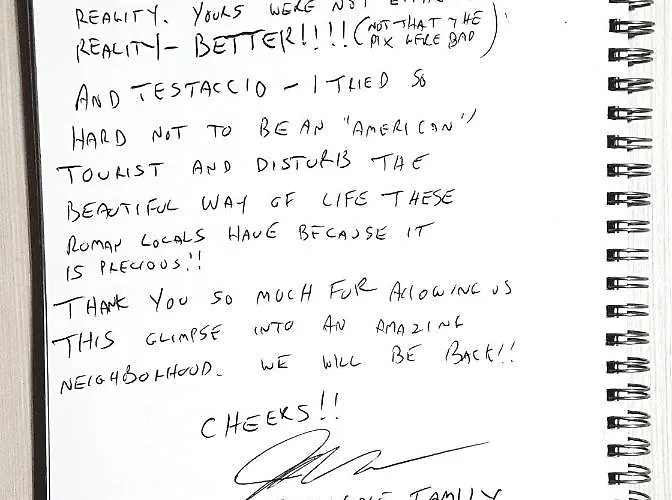 REALITY. YOURS WERE NOT
REALITY - BETTER!!!! (NOT THAT THE PIX WERE BAD)
AND TESTACCIO - I TRIED SO
HARD NOT TO BE AN "AMERICAN"
TOURIST AND DISTURB THE
BEAUTIFUL WAY OF LIFE THESE
ROMAN LOCALS HAVE BECAUSE IT
IS PRECIOUS!!
THANK YOU SO MUCH FOR ALLOWING US
THIS GLIMPSE INTO AN AMAZING
NEIGHBORHOOD. WE WILL BE BACK!!
CHEERS!!
FAMILY